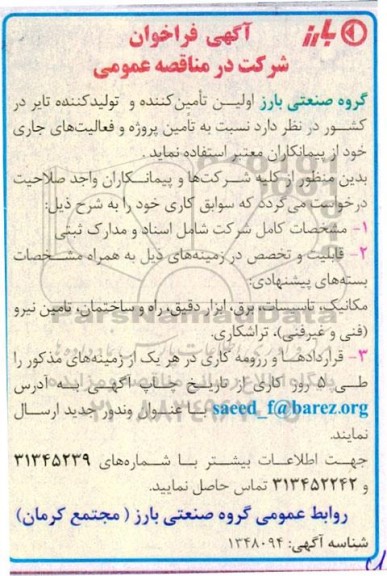 بارز
آگهی فراخوان
شرکت در مناقصه عمومی
گروه صنعتی بارز اولین تأمین‌کننده و تولیدکننده تایر در
کشور در نظر دارد نسبت به تأمین پروژه و فعالیت‌های جاری
خود از پیمانکاران معتبر استفاده نماید.
بدین منظور از کلیه شرکت‌ها و پیمانکاران واجد صلاحیت
درخواست می‌گردد که سوابق کاری خود را به شرح ذیل:
۱- مشخصات کامل شرکت شامل اسناد و مدارک ثبتی
۲- قابلیت و تخصص در زمینه‌های ذیل به همراه مشخصات
بسته‌های پیشنهادی:
مکانیک، تاسیسات، برق، ابزار دقیق، راه و ساختمان، تامین نیرو
(فنی و غیرفنی)، تراشکاری.
۳- قراردادها و رزومه کاری در هر یک از زمینه‌های مذکور را
طی ۵ روز کاری از تاریخ چاپ آگهی به آدرس
saeed_f@barez.org با عنوان وندور جدید ارسال
نمایند.
جهت اطلاعات بیشتر با شماره‌های ۳۱۳۴۵۲۳۹
و ۳۱۳۴۵۲۲۴۲ تماس حاصل نمایید.
روابط عمومی گروه صنعتی بارز (مجتمع کرمان)
شناسه آگهی: ۱۳۴۸۰۹۴